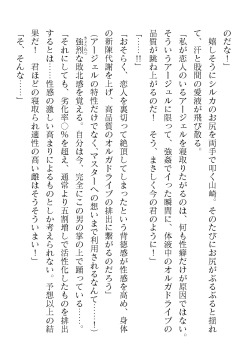 のだな！」
　嬉しそうにシルカのお尻を両手で叩く山崎。そのたびにお尻がぶるぶると揺れ
て、汗と股間の愛液が飛び散る。
「私が恋人のいるアージェルを寝取りたがるのは、何も性癖だけが原因ではない。
そういうアージェルに限って、強姦で イった瞬間に、体液中のオルガドライブの
品質が跳ね上がるのだ！　そう、まさしく今の君のように！」
「……!!」
「おそらく、恋人を裏切って絶頂してしまったという背徳感が性感を高め、身体
の新陳代謝を上げ、高品質のオルガドライブの排出に繋がるのだろう」
（アージェルの特性だけでなく、マスターへの想いまで利用されるなんて……！）
　強烈な敗北感を覚える。自分は今、完全にこの男の掌の上で踊っている……。
「それにしても、劣化率〇％を超え、通常より五割増しで活性化したものを排出
するとは……性感の激しい高まりによるものとしか考えられない。予想以上の結
果だ！　君ほどの寝取られ適性の高い雌はそうそういまい！」
「そ、そんな……」